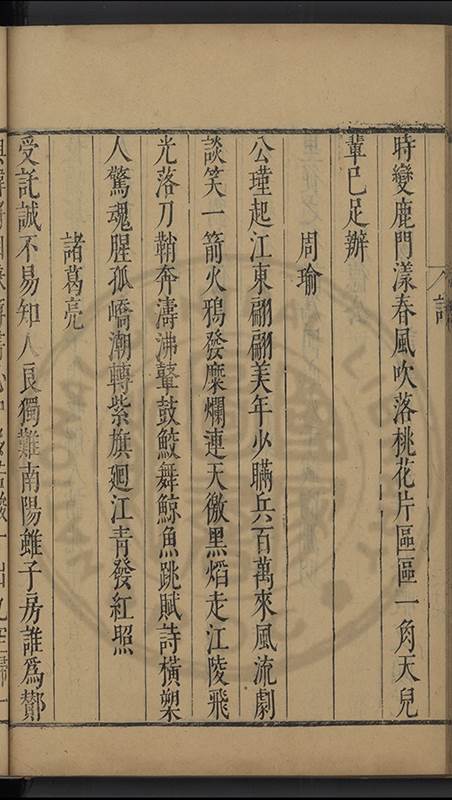 時變鹿門漾春風吹落桃花片區區一角天兒
輩已足辦
周瑜
公瑾起江東翩翩美年少瞞兵百萬來風流劇
談笑一箭火鴉發糜爛連天徼黑焰走江陵飛
光落刀鞘奔濤沸鼙鼓鮫舞鯨魚跳賦詩橫槊
人驚魂腥孤嶠潮轉紫旗廻江青發紅照
諸葛亮
受託誠不易知人良獨難南陽雖子房誰爲酇